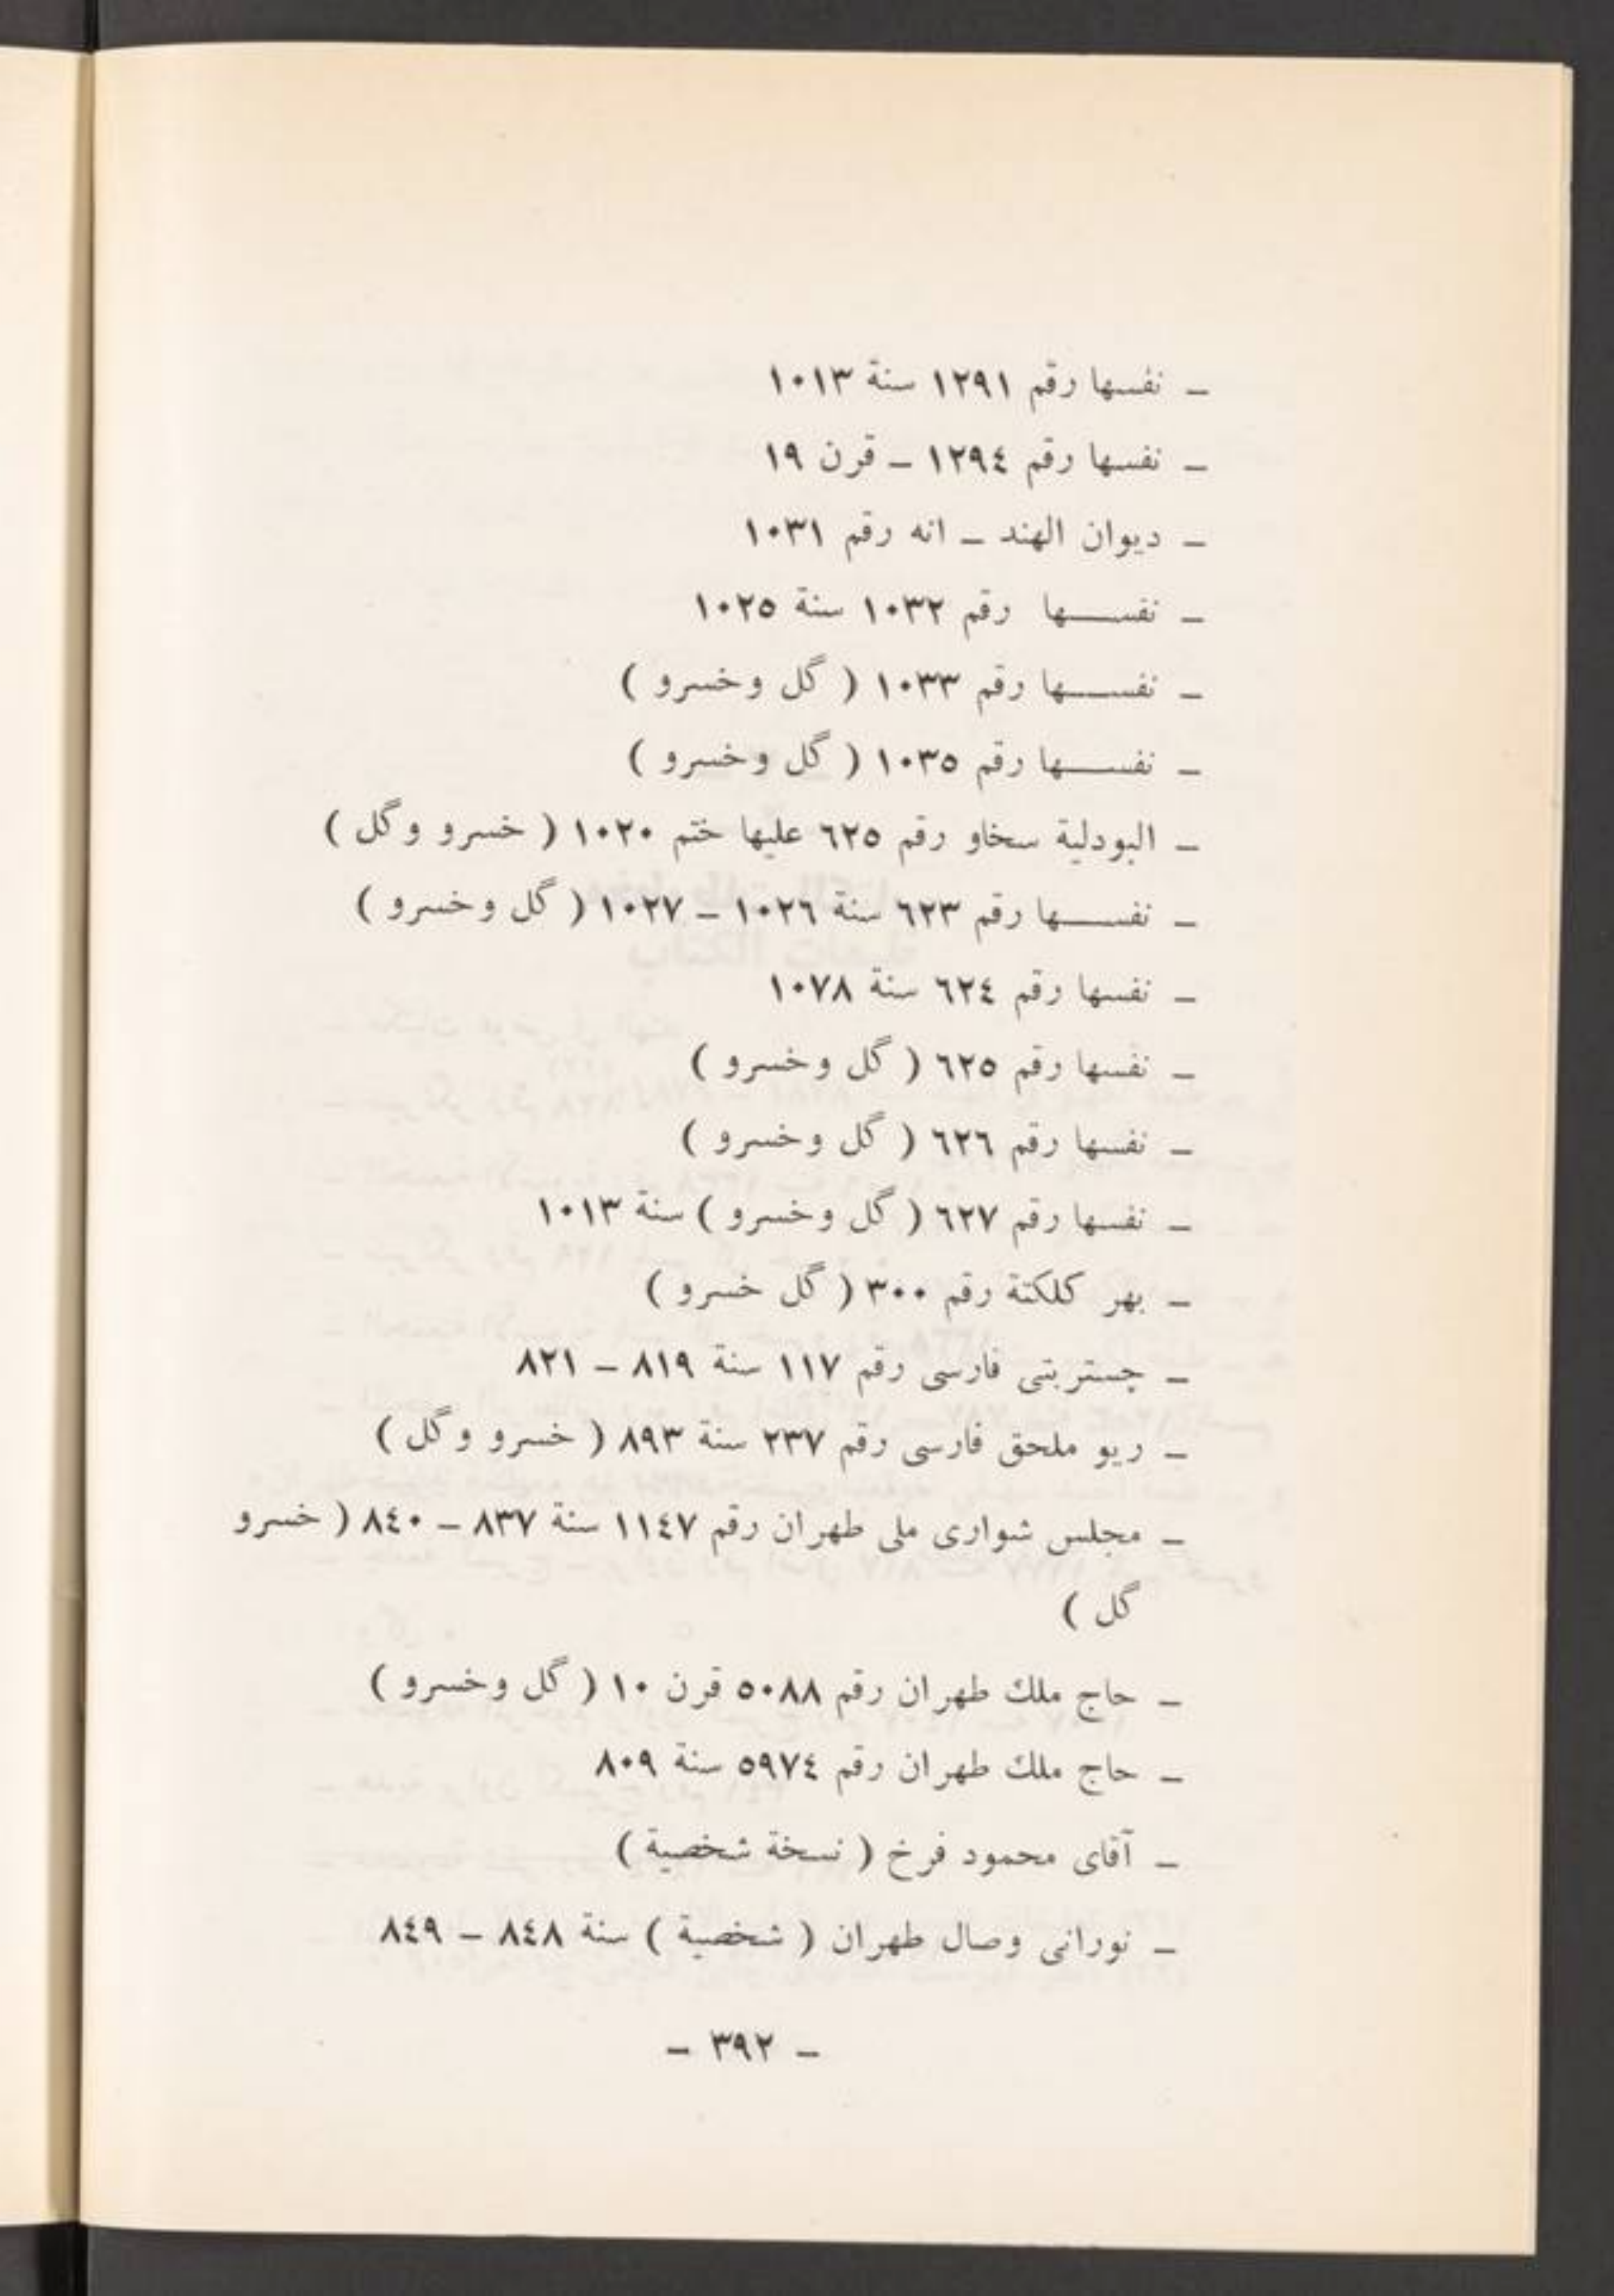 ـ نفسها رقم ١٢٩١ سنة ١٠١٣
ـ نفسها رقم ١٢٩٤ ـ قرن ١٩
ـ ديوان الهند ـ انه رقم ١٠٣١
ـ نفســـها رقم ١٠٣٢ سنة ١٠٢٥
ـ نفســـها رقم ١٠٣٣ ( گل وخسرو )
ـ نفســـها رقم ١٠٣٥ ( گل وخسرو )
ـ البودلية سخاو رقم ٦٢٥ عليها ختم ١٠٢٠ ( خسرو وگل )
ـ نفســـها رقم ٦٢٣ سنة ١٠٢٦ ـ ١٠٢٧ ( گل وخسرو )
ـ نفسها رقم ٦٢٤ سنة ١٠٧٨
ـ نفسها رقم ٦٢٥ ( گل وخسرو )
ـ نفسها رقم ٦٢٦ ( گل وخسرو )
ـ نفسها رقم ٦٢٧ ( گل وخسرو ) سنة ١٠١٣
ـ بهر كلكتة رقم ٣٠٠ ( گل خسرو )
ـ جستربتى فارسى رقم ١١٧ سنة ٨١٩ ـ ٨٢١
ـ ريو ملحق فارسى رقم ٢٣٧ سنة ٨٩٣ ( خسرو وگل )
ـ مجلس شوارى ملى طهران رقم ١١٤٧ سنة ٨٣٧ ـ ٨٤٠ ( خسرو
گل )
ـ حاج ملك طهران رقم ٥٠٨٨ قرن ١٠ ( گل وخسرو )
ـ حاج ملك طهران رقم ٥٩٧٤ سنة ٨٠٩
ـ آقاى محمود فرخ ( نسخة شخصية )
ـ نورانى وصال طهران ( شخصية ) سنة ٨٤٨ ـ ٨٤٩
ـ ٣٩٢ ـ